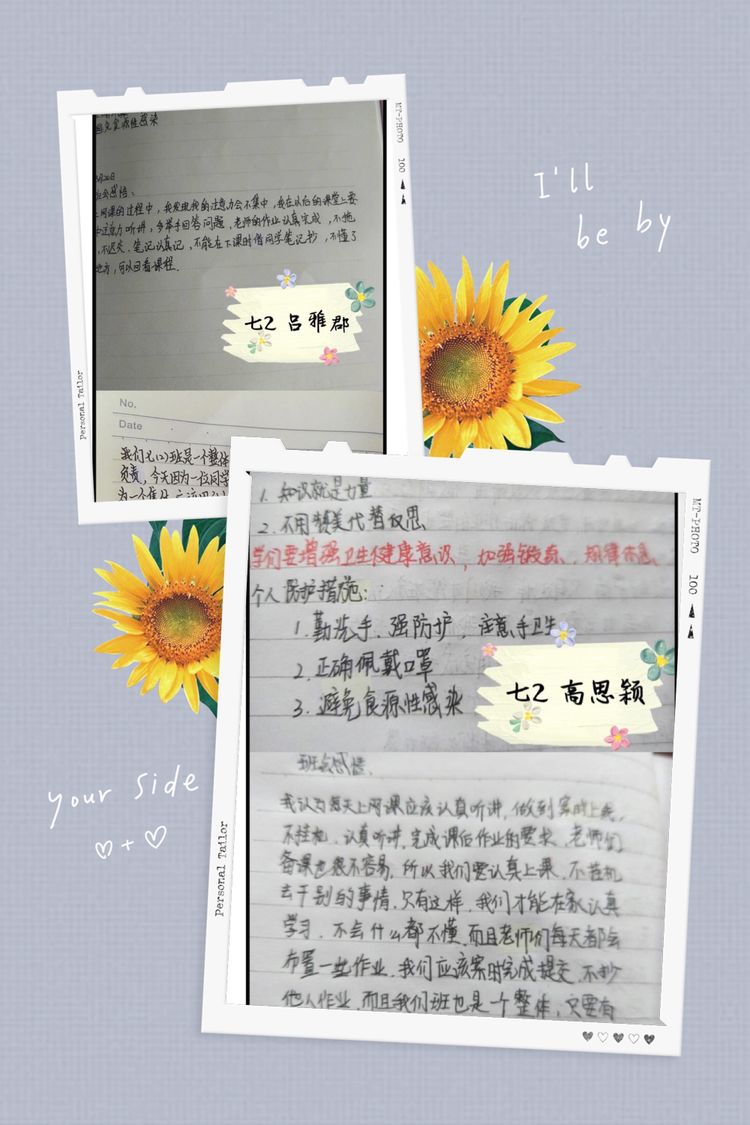 MT-PHOTO 100
免食源性感染
月20日
会感悟:
网课的过程中,我发现我的注意力会不集中,我在以后的课堂上要
注意力听讲,多举手回答问题,老师的作业认真完成,不拖
,不迟交.笔记认真记,不能在下课时借同学笔记抄,不懂了
地方,可以回看课程.
七2 吕雅郡
Personal Tailor
No.
Date
我们七(2)班是一个整体
负责,今天因为一位同学
I'll
be by
1. 知识就是力量
2. 不用赞美代替仅思
学们要增强卫生健康意识,加强锻炼、规律休息、
个人防护措施:
1.勤洗手、强防护,注意手卫生
2.正确佩戴口罩
3.避免食源性感染
七2 高思颖
MT-PHOTO 100
班会感悟.
我认为每天上网课应该认真听讲,做到实时上线,
不挂机、认真听讲,完成课后作业的要求,老师们
备课也很不容易,所以我们要认真上课,不挂机
去干别的事情,只有这样,我们才能在家认真
学习,不会什么都不懂,而且老师们每天都会
布置一些作业,我们应该按时完成提交,不抄
他人作业,而且我们班也是一个整体,只要有
Personal Tailor
your side